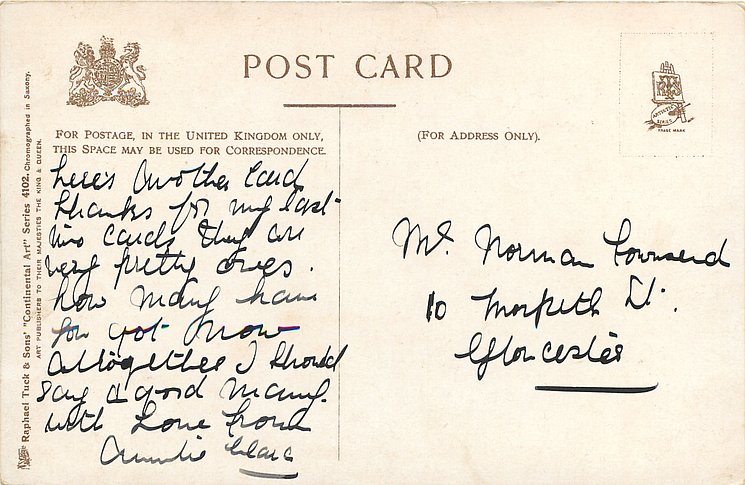 POST CARD
FOR POSTAGE, IN THE UNITED KINGDOM ONLY,
THIS SPACE MAY BE USED FOR CORRESPONDENCE.
(FOR ADDRESS ONLY).
ARTISTIC SERIES
TRADE MARK
Raphael Tuck & Sons' "Continental Art" Series 4102. Chromographed in Saxony.
ART PUBLISHERS TO THEIR MAJESTIES THE KING & QUEEN.
here's another Card
thanks for my last
two cards they are
very pretty ones.
how many have
you got now
altogether I should
say a good many.
with Love from
Auntie Clare
Mr. Norman Townsend
10 Morpeth St.
Gloucester